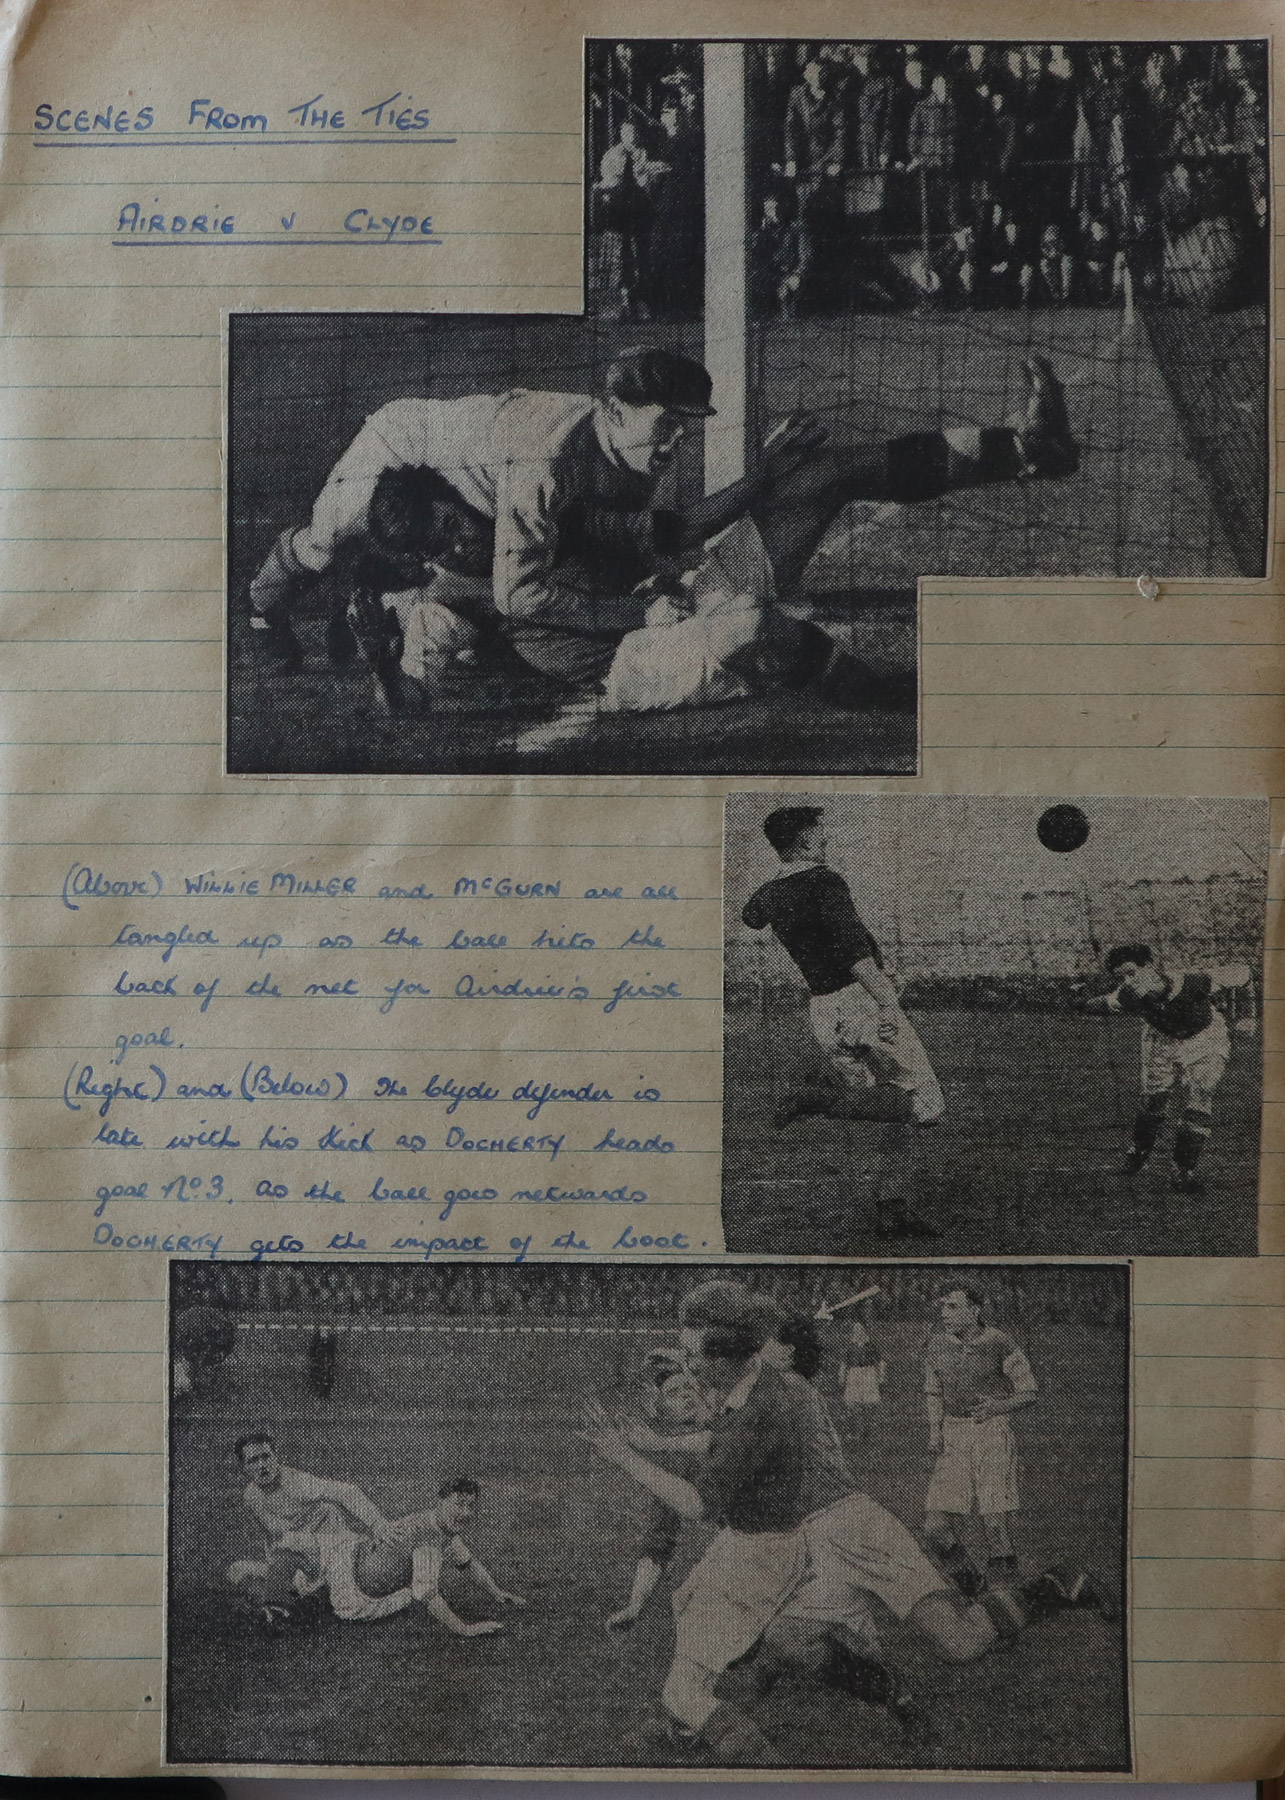 SCENES FROM THE TIES
AIRDRIE v CLYDE
(Above) WILLIE MILLER and McGURN are all
tangled up as the ball hits the
back of the net for Airdrie's first
goal.
(Right) and (Below) The Clyde defender is
late with his kick as DOCHERTY heads
goal No 3. As the ball goes netwards
DOCHERTY gets the impact of the boot.